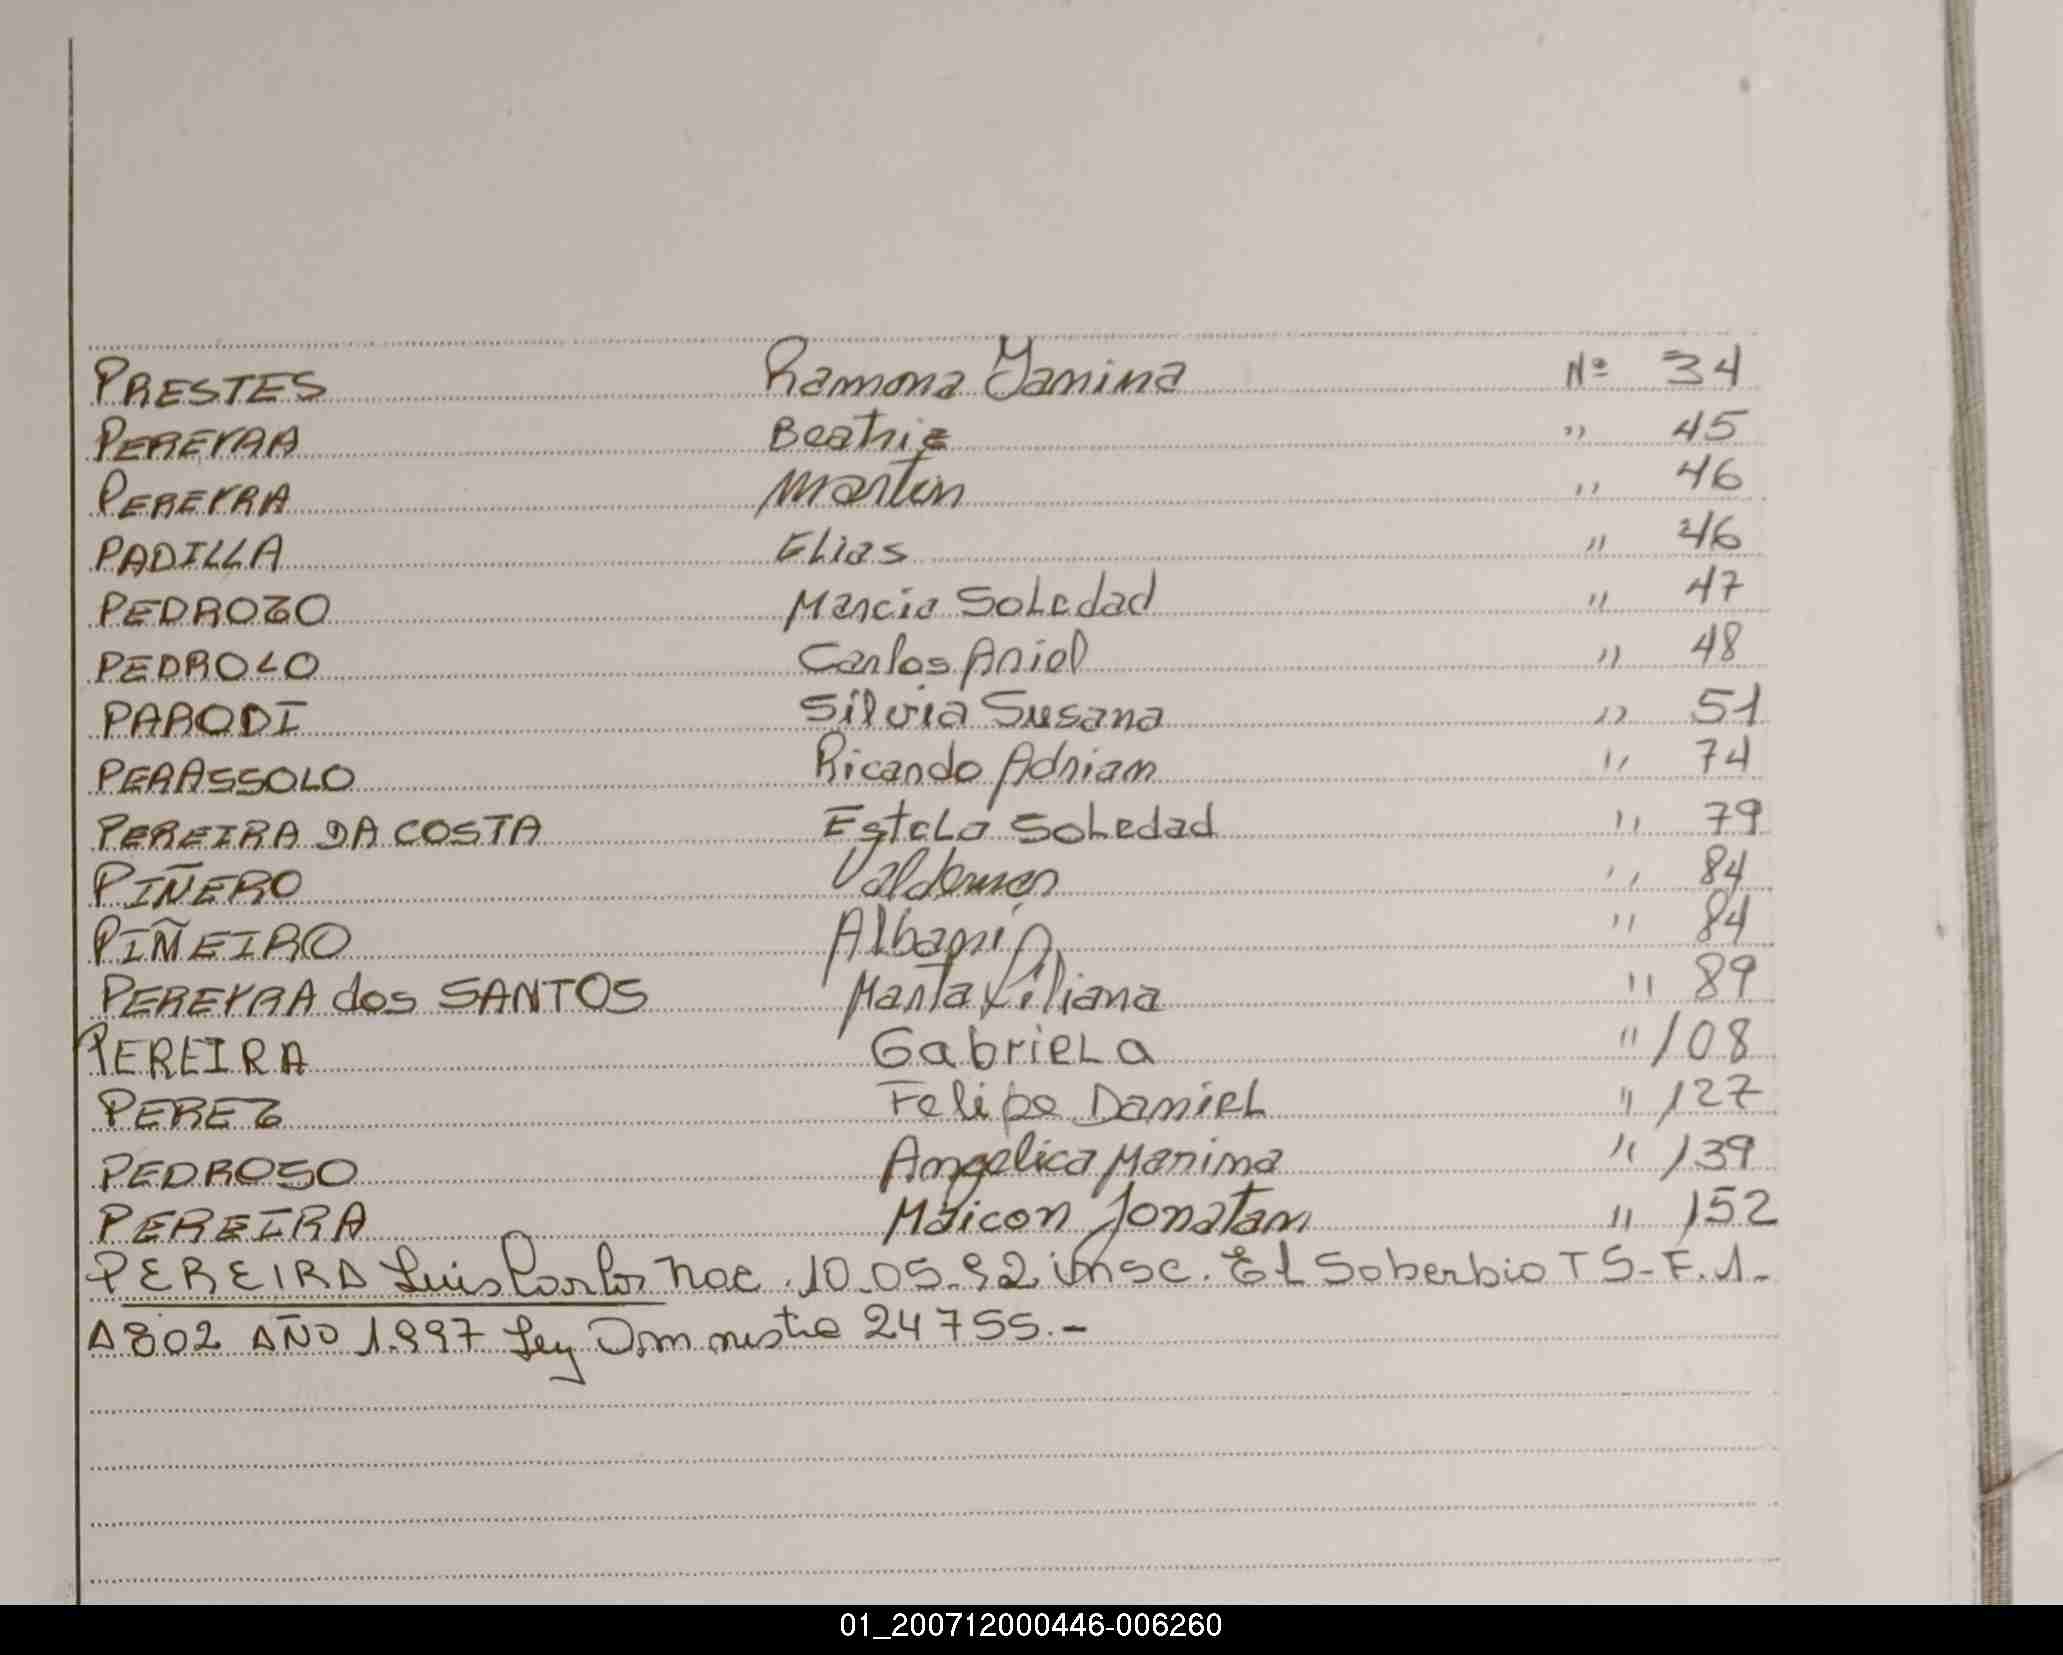 PRESTES Ramona Yanina Nº 34
PEREYRA Beatriz " 45
PEREYRA Martin " 46
PADILLA Elias " 46
PEDROZO Marcia Soledad " 47
PEDROLO Carlos Ariel " 48
PARODI Silvia Susana " 51
PERASSOLO Ricardo Adrian " 74
PEREIRA DA COSTA Estela Soledad " 79
PIÑERO Valdemar " 84
PIÑEIRO Albani " 84
PEREYRA dos SANTOS Marta Liliana " 89
PEREIRA Gabriela " 108
PEREZ Felipe Daniel " 127
PEDROSO Angelica Marina " 139
PEREIRA Maicon Jonatan " 152
PEREIRA Luis Carlos nac. 10.05.92 insc. El Soberbio T S-F.1-
A802 AÑO 1.997 Ley 24755.-
01_200712000446-006260